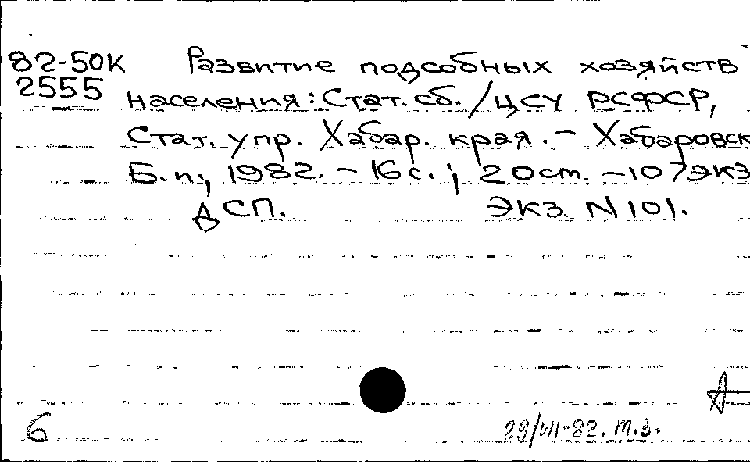 82-50К Развитие подсобных хозяйств
2555 населения: Стат. сб. / ЦСУ РСФСР,
Стат. упр. Хабар. края. - Хабаровск
Б.и., 1982. - 16 с.; 20 см. - 107 экз
ДСП. Экз. N 101.
А
6 28/VII-82. т.з.